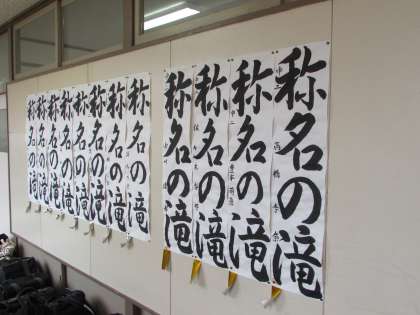 称名の滝
称名の滝
称名の滝
称名の滝
称名の滝
称名の滝
称名の滝
称名の滝
称名の滝
称名の滝
称名の滝
称名の滝